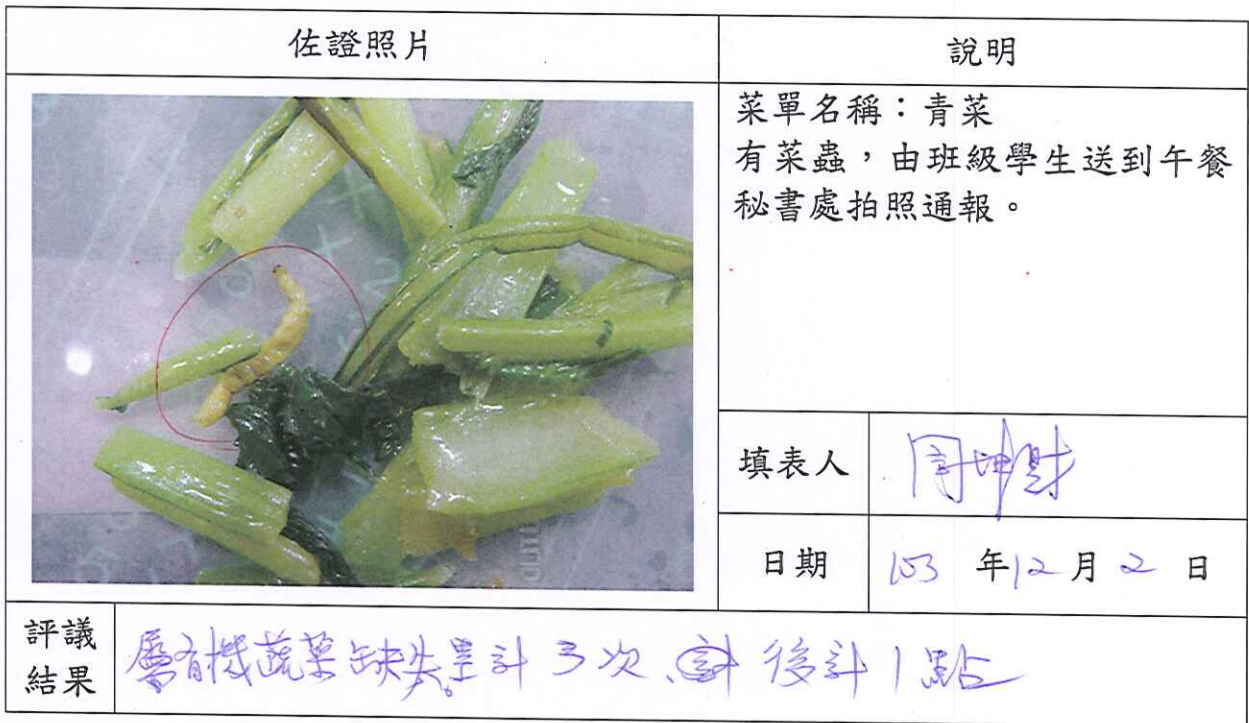 佐證照片
說明
菜單名稱：青菜
有菜蟲，由班級學生送到午餐
秘書處拍照通報。
填表人 周坤財
日期 103 年 12 月 2 日
評議
結果
屬有機蔬菜缺失。累計 3 次、後計 1 點